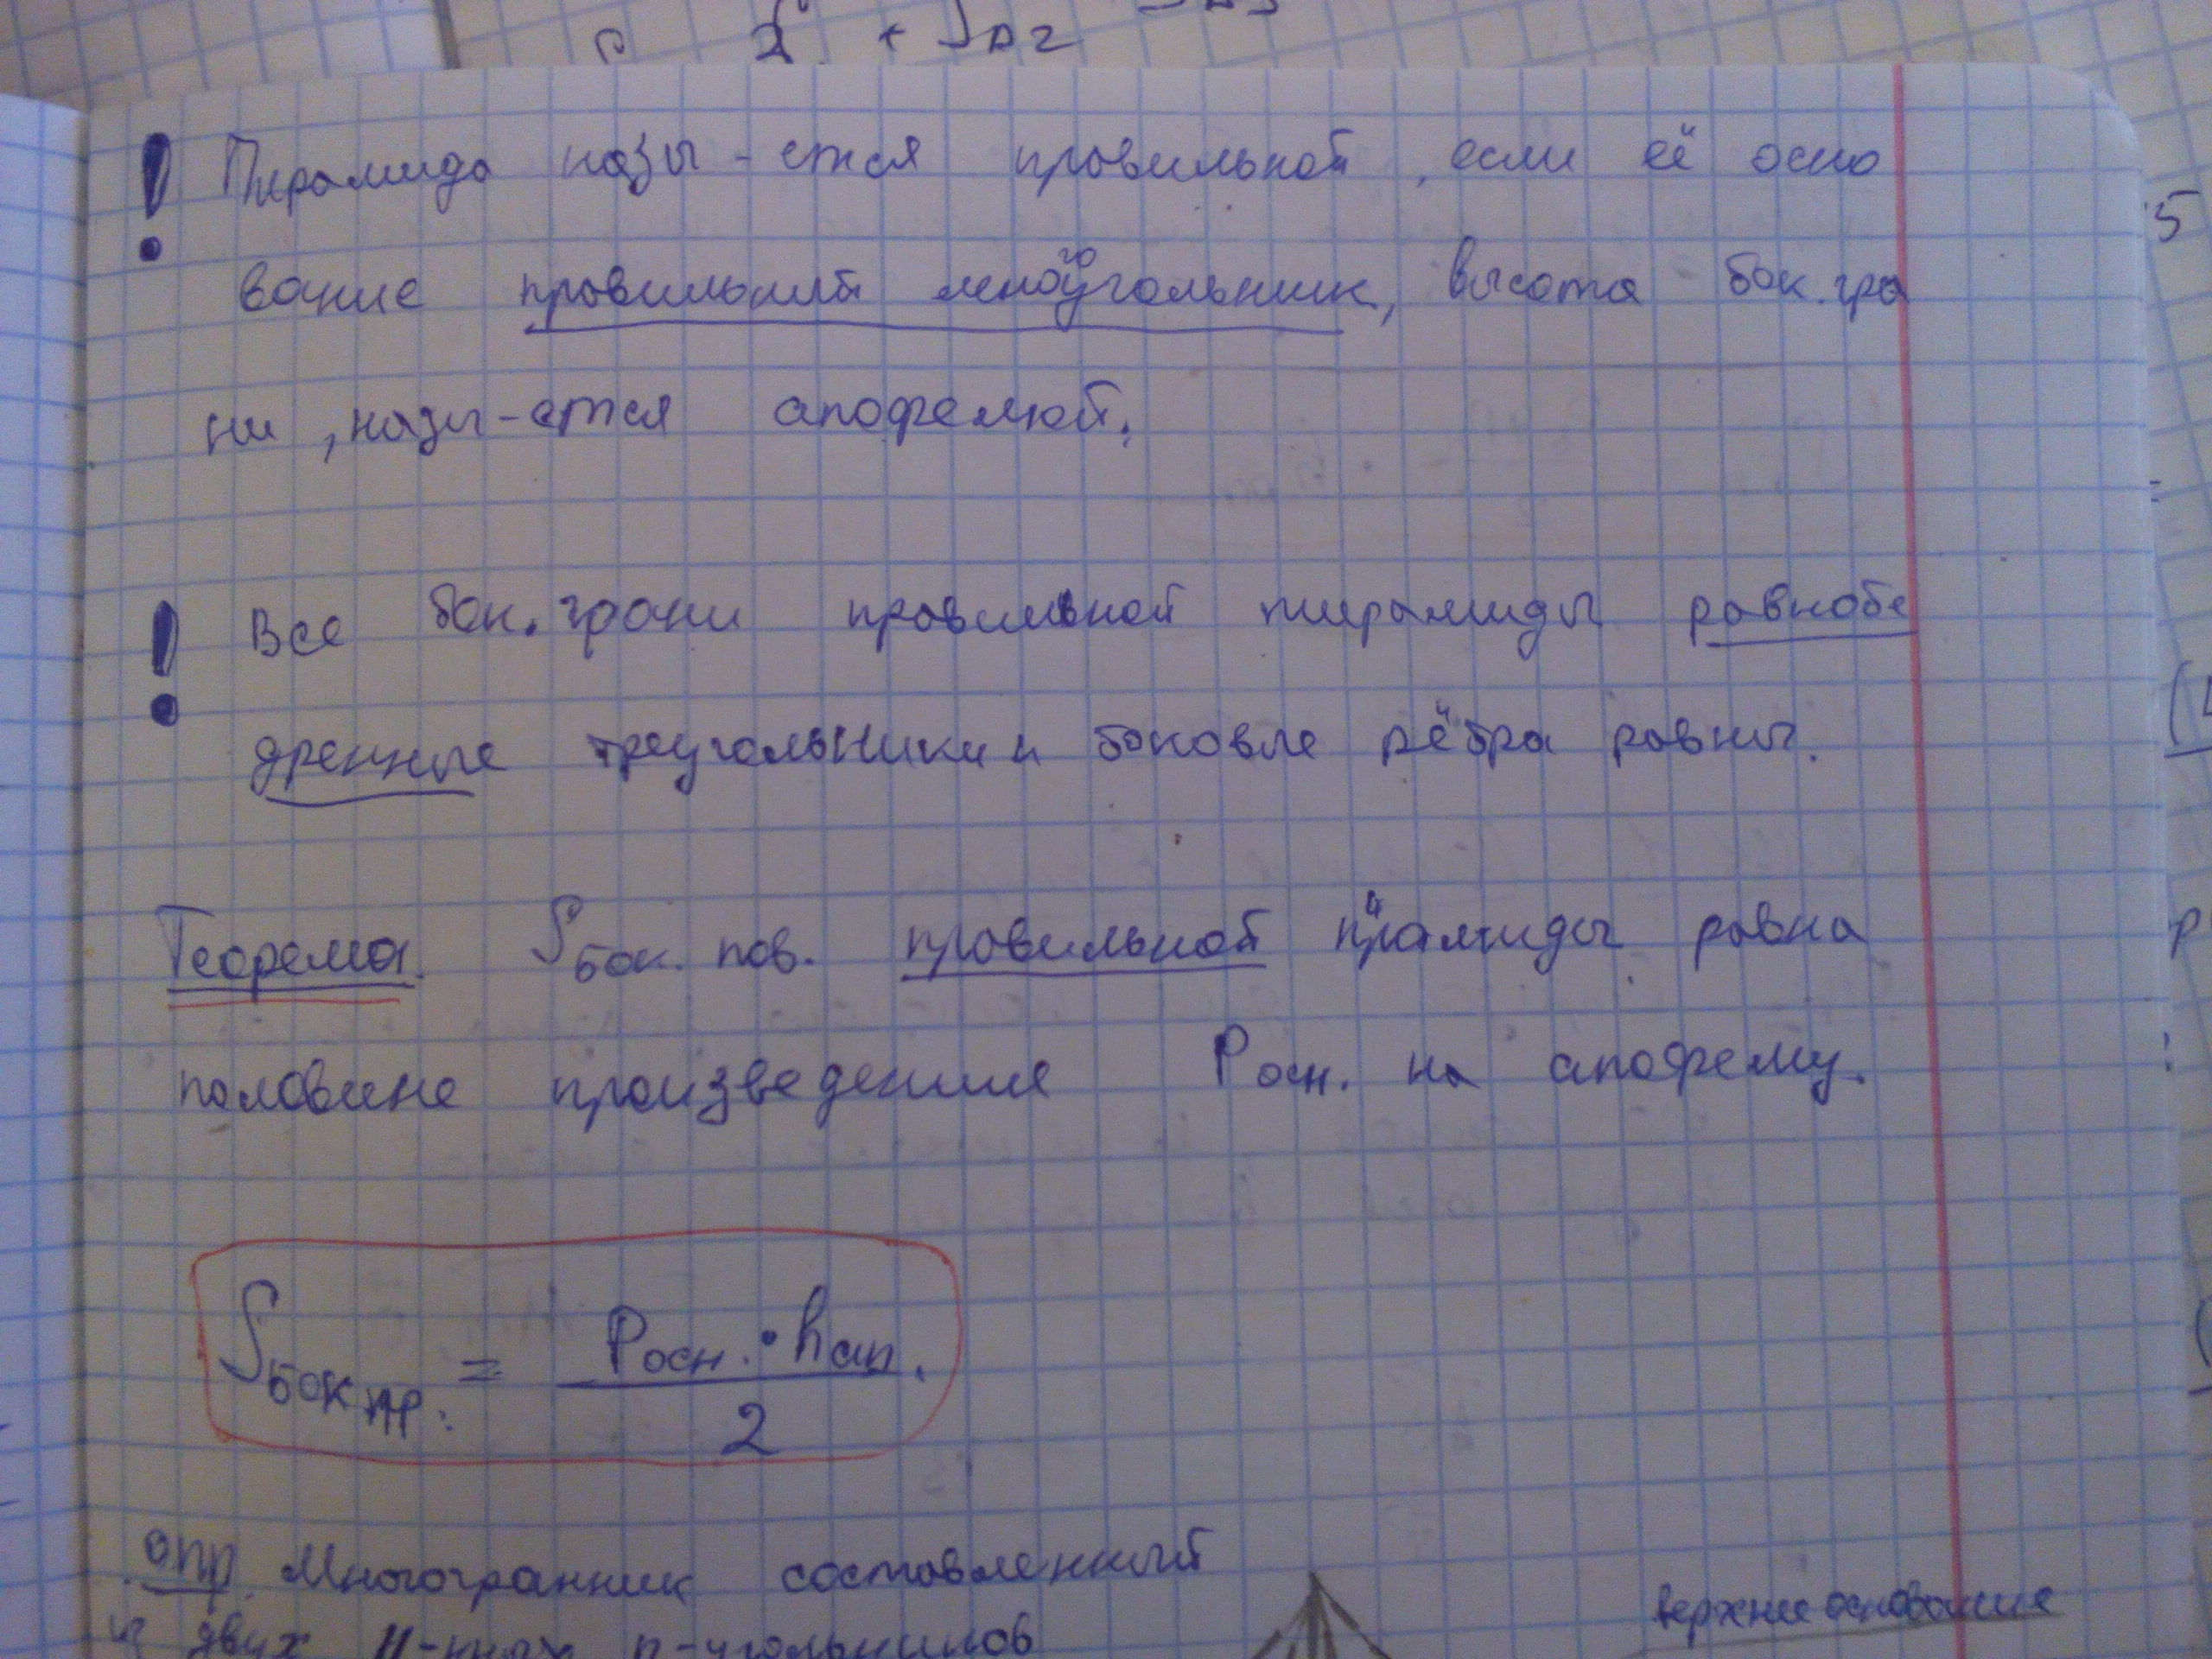 ! Пирамида назы-ется правильной, если её осно
вание правильный многоугольник, высота бок. гра
ни, назы-ется апофемой.
! Все бок. грани правильной пирамиды равнобе
дренные треугольники и боковые рёбра равны.
Теорема. Sбок. пов. правильной пирамиды равна
половине произведения Pосн. на апофему.
Sбок пр. = Pосн. · hап. / 2
опр. Многогранник составленный
из двух n-угольников
верхнее основание